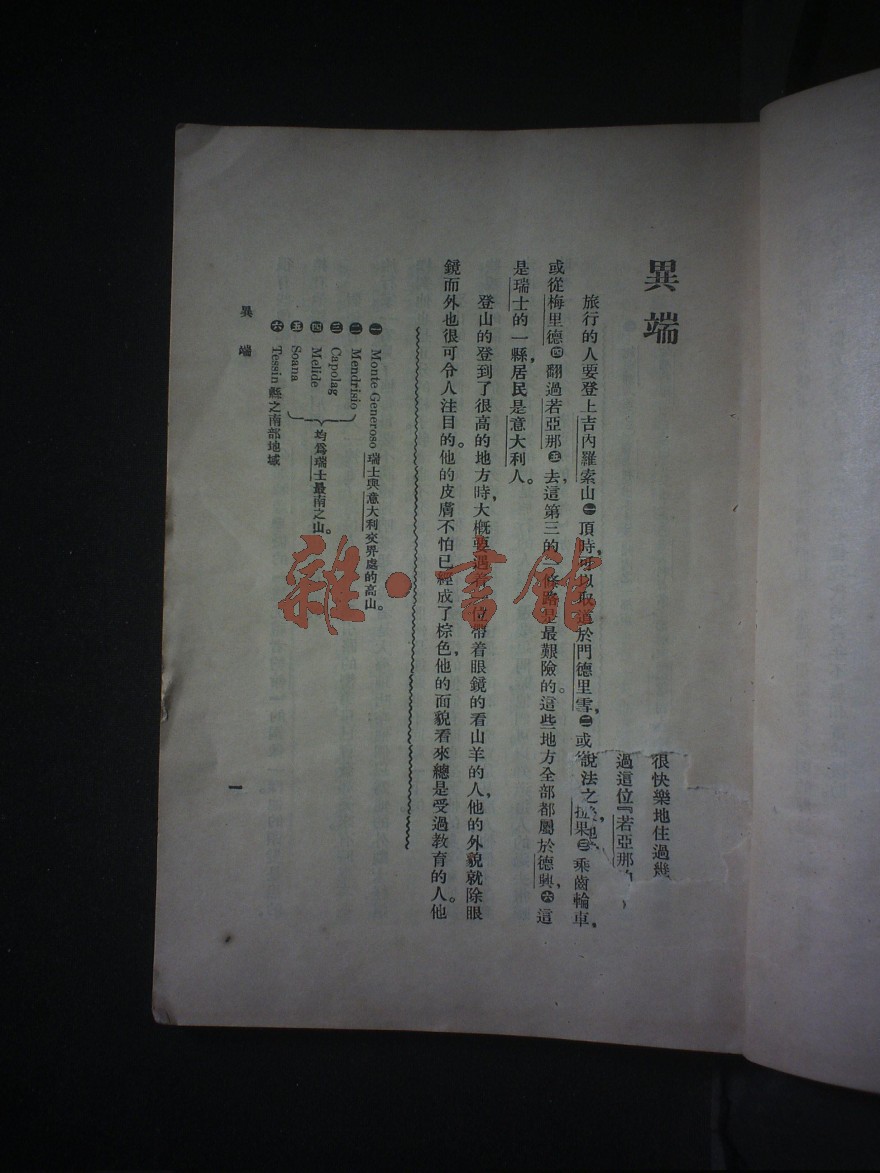 異端
旅行的人要登上吉內羅索山㊀頂時,可以取道於門德里雪,㊁或
果㊂乘齒輪車,
或從梅里德㊃翻過若亞那㊄去,這第三的一條路是最艱險的。這些地方全部都屬於德興,㊅這
是瑞士的一縣,居民是意大利人。
登山的登到了很高的地方時,大概要遇着一位帶着眼鏡的看山羊的人,他的外貌就除眼
鏡而外也很可令人注目的。他的皮膚不怕已經成了棕色,他的面貌看來總是受過教育的人。他
㊀ Monte Generoso 瑞士與意大利交界處的高山。
㊁ Mendrisio
㊂ Capolag
㊃ Melide
㊄ Soana
均爲瑞士最南之山。
㊅ Tessin 縣之南部地域
異端
一
很快樂地住過幾
過這位『若亞那
說法之
雜·書館